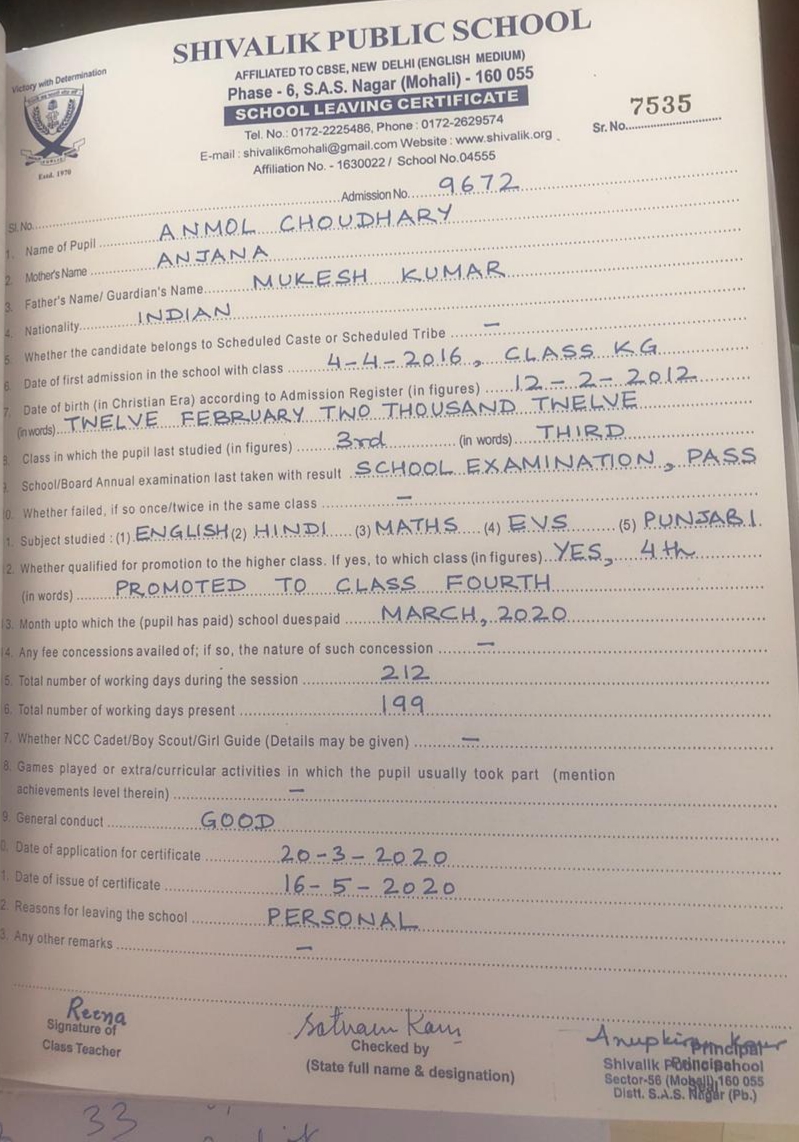 SHIVALIK PUBLIC SCHOOL
Victory with Determination
AFFILIATED TO CBSE, NEW DELHI (ENGLISH MEDIUM)
Phase - 6, S.A.S. Nagar (Mohali) - 160 055
SCHOOL LEAVING CERTIFICATE
Tel. No.: 0172-2225486, Phone : 0172-2629574
E-mail : shivalik6mohali@gmail.com Website : www.shivalik.org
Affiliation No. - 1630022 / School No.04555
Estd. 1970
Sr. No. 7535
Sl. No. Admission No. 9672
1. Name of Pupil ANMOL CHOUDHARY
2. Mother's Name ANJANA
3. Father's Name/ Guardian's Name MUKESH KUMAR
4. Nationality INDIAN
5. Whether the candidate belongs to Scheduled Caste or Scheduled Tribe –
6. Date of first admission in the school with class 4-4-2016, CLASS KG
7. Date of birth (in Christian Era) according to Admission Register (in figures) 12-2-2012
(in words) TWELVE FEBRUARY TWO THOUSAND TWELVE
8. Class in which the pupil last studied (in figures) 3rd (in words) THIRD
9. School/Board Annual examination last taken with result SCHOOL EXAMINATION, PASS
0. Whether failed, if so once/twice in the same class –
1. Subject studied : (1) ENGLISH (2) HINDI (3) MATHS (4) EVS (5) PUNJABI.
2. Whether qualified for promotion to the higher class. If yes, to which class (in figures). YES, 4th
(in words) PROMOTED TO CLASS FOURTH
13. Month upto which the (pupil has paid) school duespaid MARCH, 2020
14. Any fee concessions availed of; if so, the nature of such concession –
5. Total number of working days during the session 212
6. Total number of working days present 199
7. Whether NCC Cadet/Boy Scout/Girl Guide (Details may be given) –
8. Games played or extra/curricular activities in which the pupil usually took part (mention
achievements level therein) –
9. General conduct GOOD
0. Date of application for certificate 20-3-2020
1. Date of issue of certificate 16-5-2020
2. Reasons for leaving the school PERSONAL
3. Any other remarks –
Reena
Signature of
Class Teacher
Satnam Kaur
Checked by
(State full name & designation)
Anupkiran Kaur
Principal
Shivalik Public School
Sector-56 (Mohali) 160 055
Distt. S.A.S. Nagar (Pb.)
33